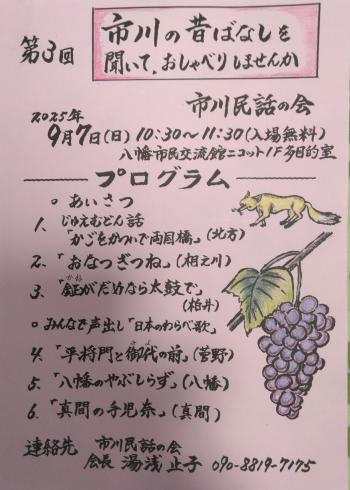 第3回
市川の昔ばなしを
聞いて、おしゃべりしませんか
市川民話の会
2025年
9月7日(日) 10:30~11:30(入場無料)
八幡市民交流館ニコット1F多目的室
プログラム
○ あいさつ
1. じゅえむどん話
「かごをかついで両国橋」(北方)
2.「おなつぎつね」(相之川)
3.「鉦がだめなら太鼓で」
かね
(柏井)
○ みんなで声出し「日本のわらべ歌」
4.「平将門と御代の前」(菅野)
みよ
5.「八幡のやぶしらず」(八幡)
6.「真間の手児奈」(真間)
連絡先 市川民話の会
会長 湯浅止子 090-8819-7175